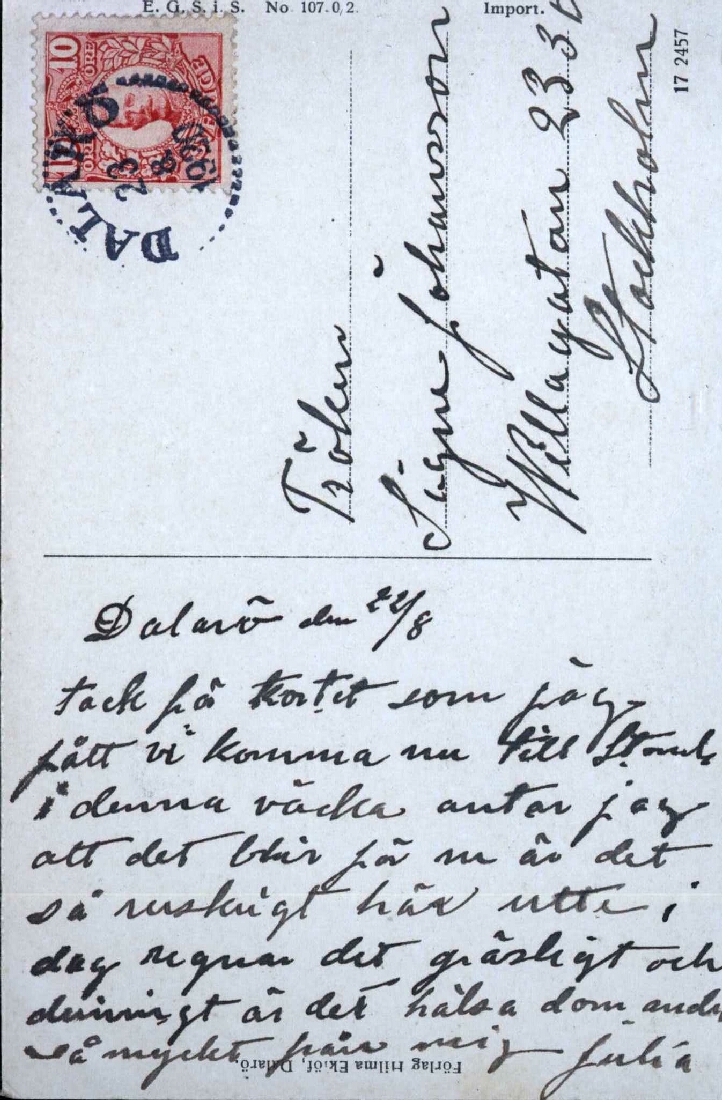 E. G. S. i. S. No 107.0,2. Import.
17 2457
10
ÖRE
DALARÖ
23
8
Fröken
Signe Johansson
Willagatan 23
Stockholm
Dalarö den 22/8
tack på kortet som jag
fått vi komma nu till
i denna väcka antar jag
att det blir för nu är det
så ruskigt här utte i
dag regnar det gräsligt och
det hälsa dom andr
så mycket från mig Julia
Förlag Hilma Ekjöf, Dalarö.